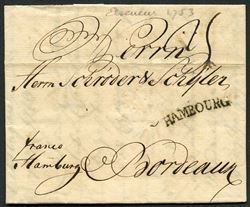 1753
Herrn Schröder & Schÿler
HAMBOURG
franco
Hamburg
à Bordeaux